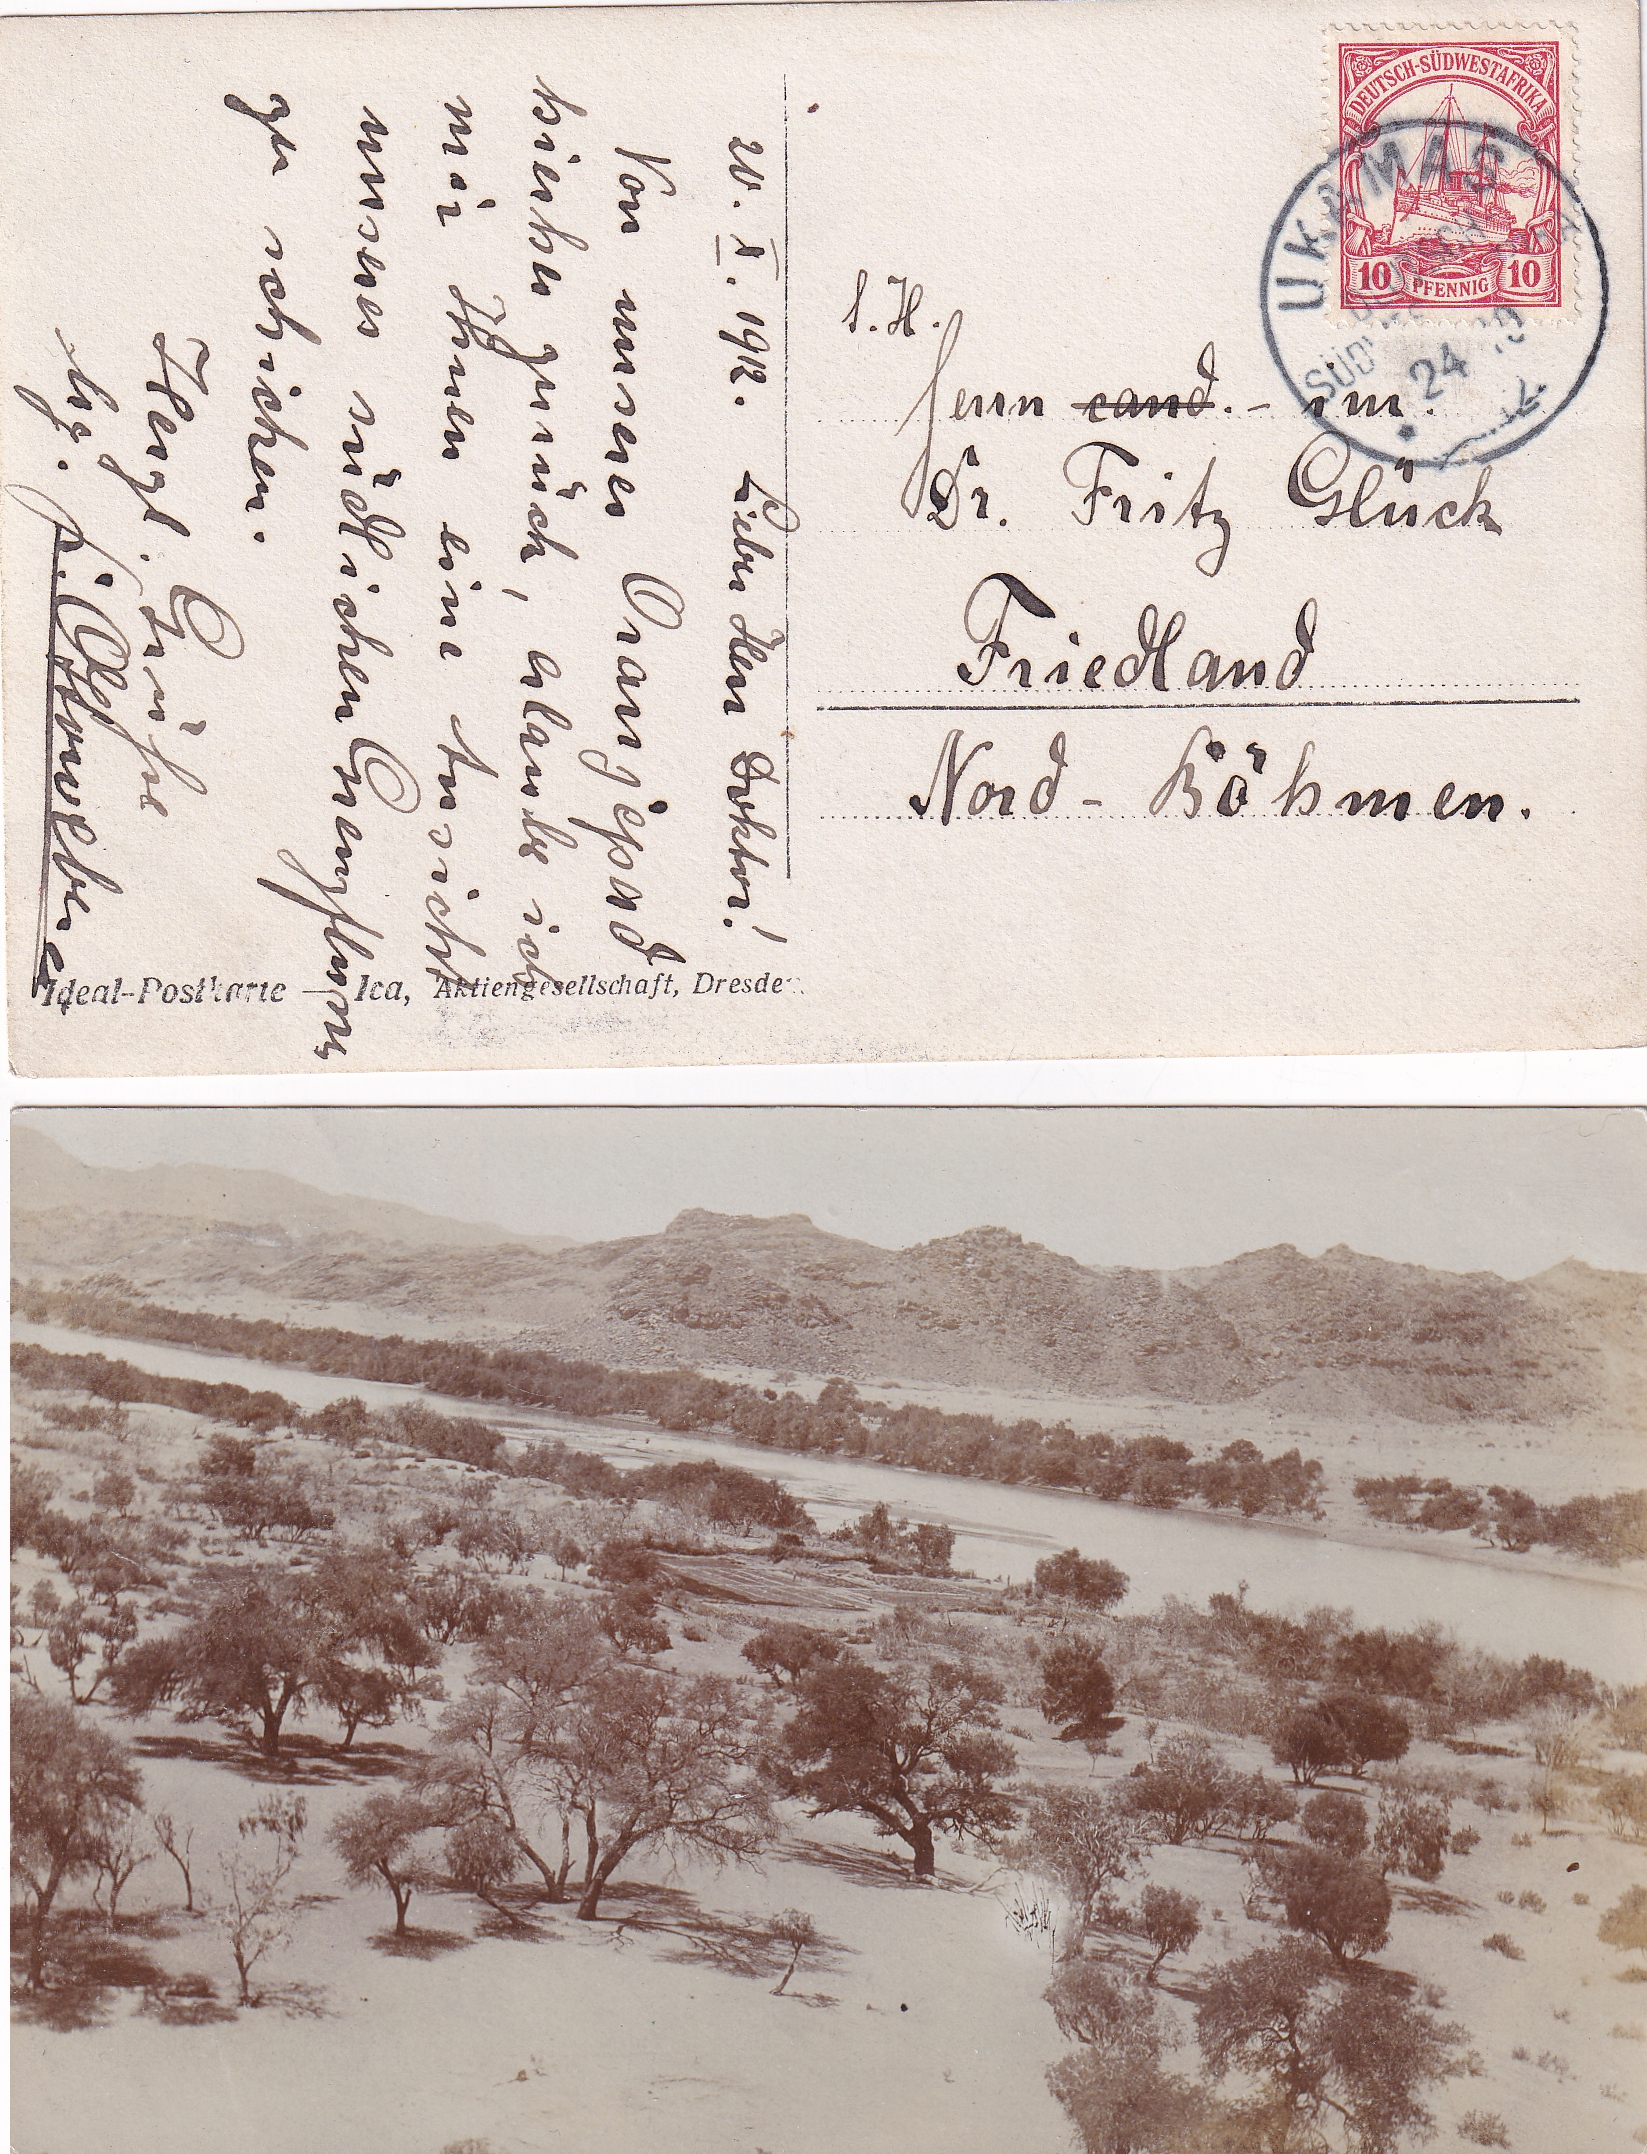 DEUTSCH-SÜDWESTAFRIKA
10 PFENNIG 10
UKAMAS
24 10 12
20. X. 1912. Lieber Herr Doktor!
Von unserer Oranjepad
hierher zurück, erlaube ich
mir Ihnen eine Ansicht
unseres südlichen Grenzflusses
zu schicken.
Herzl. Grüße
S. H.
Herrn cand. - im.
Dr. Fritz Glück
Friedland
Nord-Böhmen.
Ideal-Postkarte — Ica, Aktiengesellschaft, Dresden.